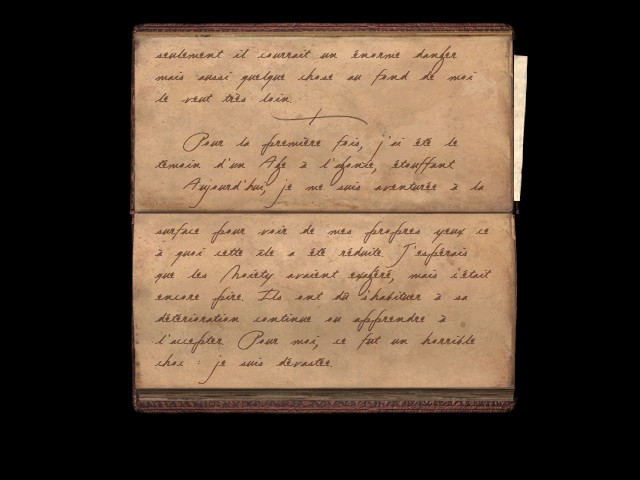 seulement il courrait un énorme danger
mais aussi quelque chose au fond de moi
le veut très loin.
Pour la première fois, j'ai été le
témoin d'un Age à l'agonie, étouffant
Aujourd'hui, je me suis aventurée à la
surface pour voir de mes propres yeux ce
à quoi cette île a été réduite. J'espérais
que les Moiety avaient exagéré, mais c'était
encore pire. Ils ont dû s'habituer à sa
détérioration continue ou apprendre à
l'accepter. Pour moi, ce fut un horrible
choc : je suis dévastée.